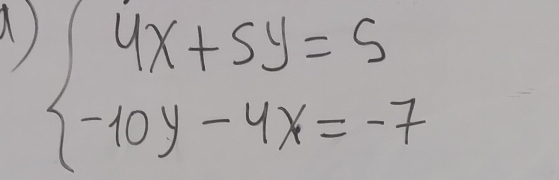 ) { 4x+5y=5
-10y-4x=-7